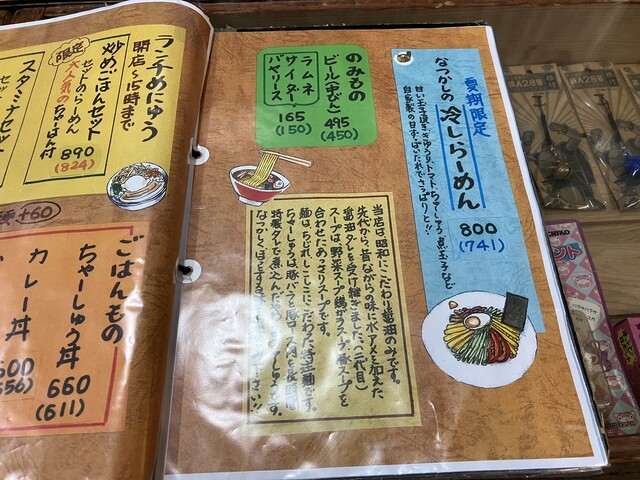 夏期限定
なつかしの冷しらーめん
甘い玉子焼き、きゅうり、トマト、ちゃーしゅう、煮玉子など
自家製の甘ずっぱいたれでさっぱりと!!
800
(741)
のみもの
ビール(中びん)
495
(450)
ラムネ
サイダー
バヤリース
165
(150)
当店は、昭和にこだわり醤油のみです。
先代から、昔ながらの味に水アメを加えた
醤油タレを受け継ぎました(二代目)
スープは、野菜スープ、鶏がらスープ、豚スープを
合わせたあっさりスープです。
麺は、ちぢれ、こしにこだわった特注麺です。
ちゃーしゅうは、豚バラと豚ロース肉を長時間
特製ダレで煮込んだ
らんちめにゅう
開店〜15時まで
限定
炒めごはんセット
セットのらーめん
大人気のちゃーはん付
890
(824)
スタミナセット
+60
ごはんもの
ちゃーしゅう丼
660
(611)
カレー丼